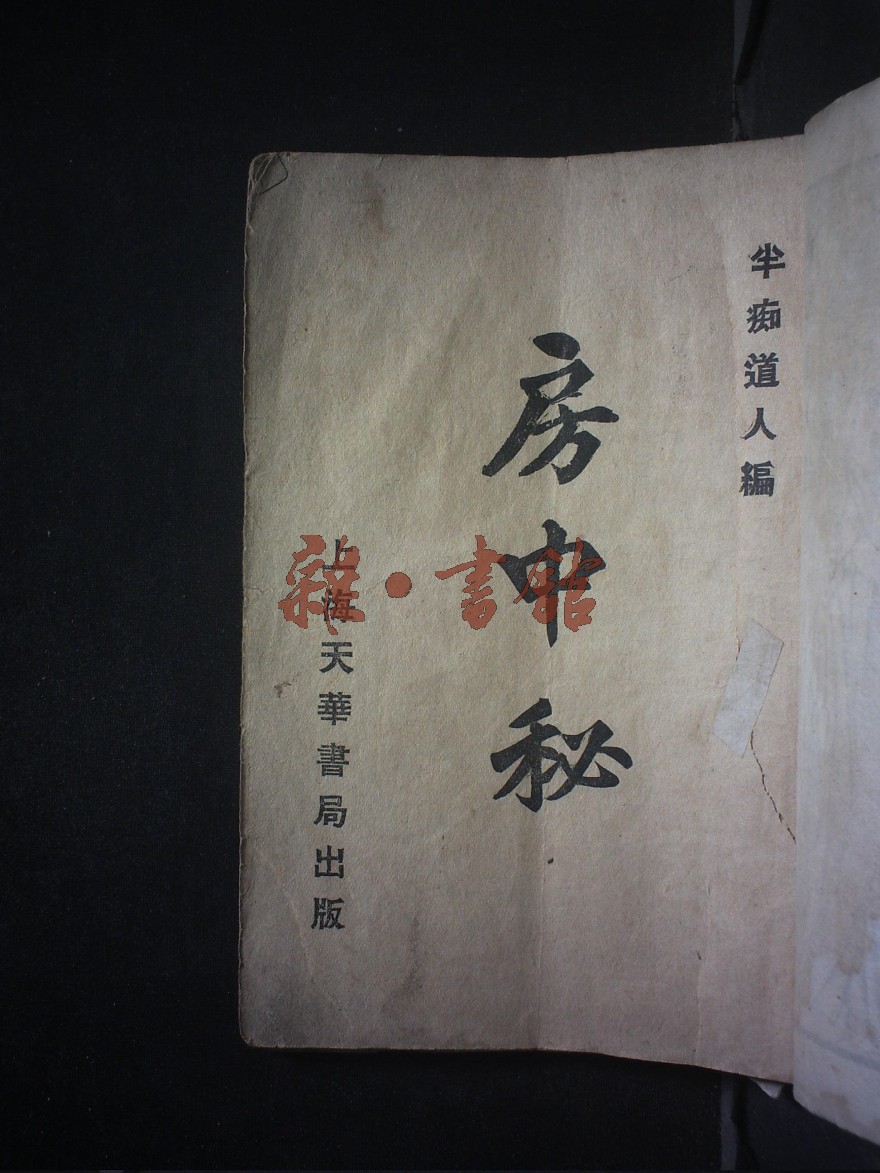 半痴道人編
房中秘
上海天華書局出版
雜·書館